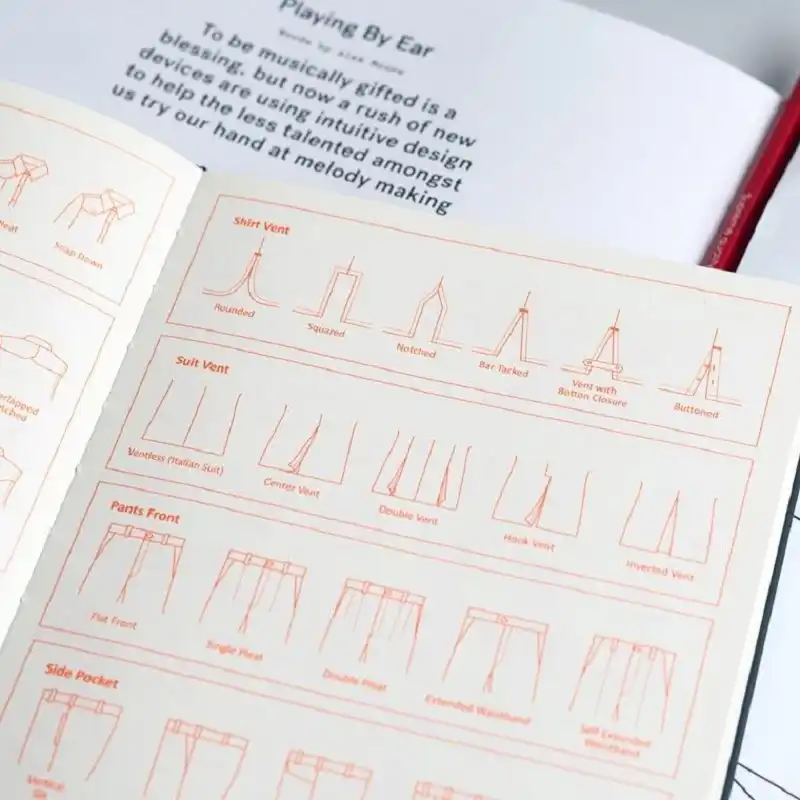 Playing By Ear
Words by Alex Moore
To be musically gifted is a
blessing, but now a rush of new
devices are using intuitive design
to help the less talented amongst
us try our hand at melody making
Snap Down
Shirt Vent
Rounded
Squazed
Notched
Bar Tacked
Vent with
Botton Closure
Buttoned
Suit Vent
Ventless (Italian Suit)
Center Vent
Double Vent
Hook Vent
Inverted Vent
Pants Front
Flat Front
Single Pleat
Double Pleat
Extended Waistband
Self Extended
Waistband
Side Pocket
Vertical